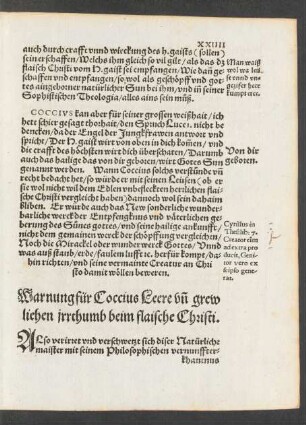 XXIIII
auch durch crafft vnnd wirckung des h. gaists (sollen)
sein erschaffen/Welchs ihm gleich so vil gilt/ als das dz
flaisch Christi vom H. gaist sei empfangen/Wie dan ge-
schaffen vnd empfangen/so wol als geschöpff vnd got-
tes aingeborner natürlicher Sun bei ihm/vnd in seiner
Sophistischen Theologia/alles ains sein müß.
Man waiß
wol wa
vnd vn-
her
kumpt
COCCIVS kan aber für seiner grossen weißhait/ich
hett schier gesagt thorhait/den Spruch Luce 1. nicht be
dencken/da der Engel der Jungkfrawen antwort vnd
spricht/Der H. gaist wirt von oben in dich komen/ vnd
die crafft des höchsten wirt dich überschatten/Darumb
auch das hailige das von dir geboren/wirt Gottes Sun
genannt werden. Wann Coccius solchs verstünde vñ
recht bedacht het/so würde er mit seinen Leüsen (ob er
sie wol nicht wil dem Edlen vnbefleckten herrlichen flai-
sche Christi vergleicht haben) dannoch wol sein dahaim
bliben. Er würde auch das New sonderliche wunder-
barliche werck der Entpfengknus vnd väterlichen ge-
berung des Süns gottes/vnd seine hailige ankunfft/
nicht dem gemainen werck der schöpffung vergleichen/
Noch die Mirackel oder wunderwerck Gottes/Vnnd
was auß staub/erde/faulem lufft rc. herfür kompt/da-
hin richten/vnd seine vermainte Creatur an Chri
sto damit wöllen beweren.
Von dir
geboren.
Cyrillus in
Thesau. li. 7.
Creator etiam
ad extra pro
ducit, Geni-
tor vero ex
seipso gene-
rat.
Warnung für Coccius Leere vñ grew
lichen jrrthumb beim flaische Christi.
ALso verirret vnd verschwetzt sich diser Natürliche
maister mit seinem Philosophischen vernunffter-